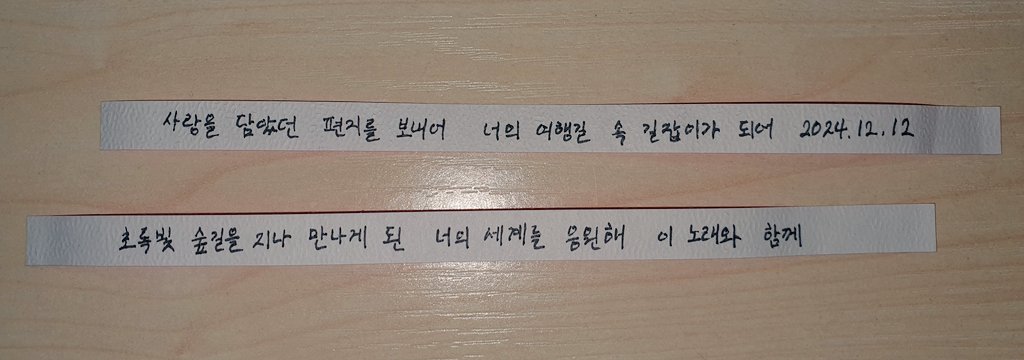 사랑을 담았던 편지를 보내어 너의 여행길 속 길잡이가 되어 2024.12.12
초록빛 숲길을 지나 만나게 된 너의 세계를 응원해 이 노래와 함께